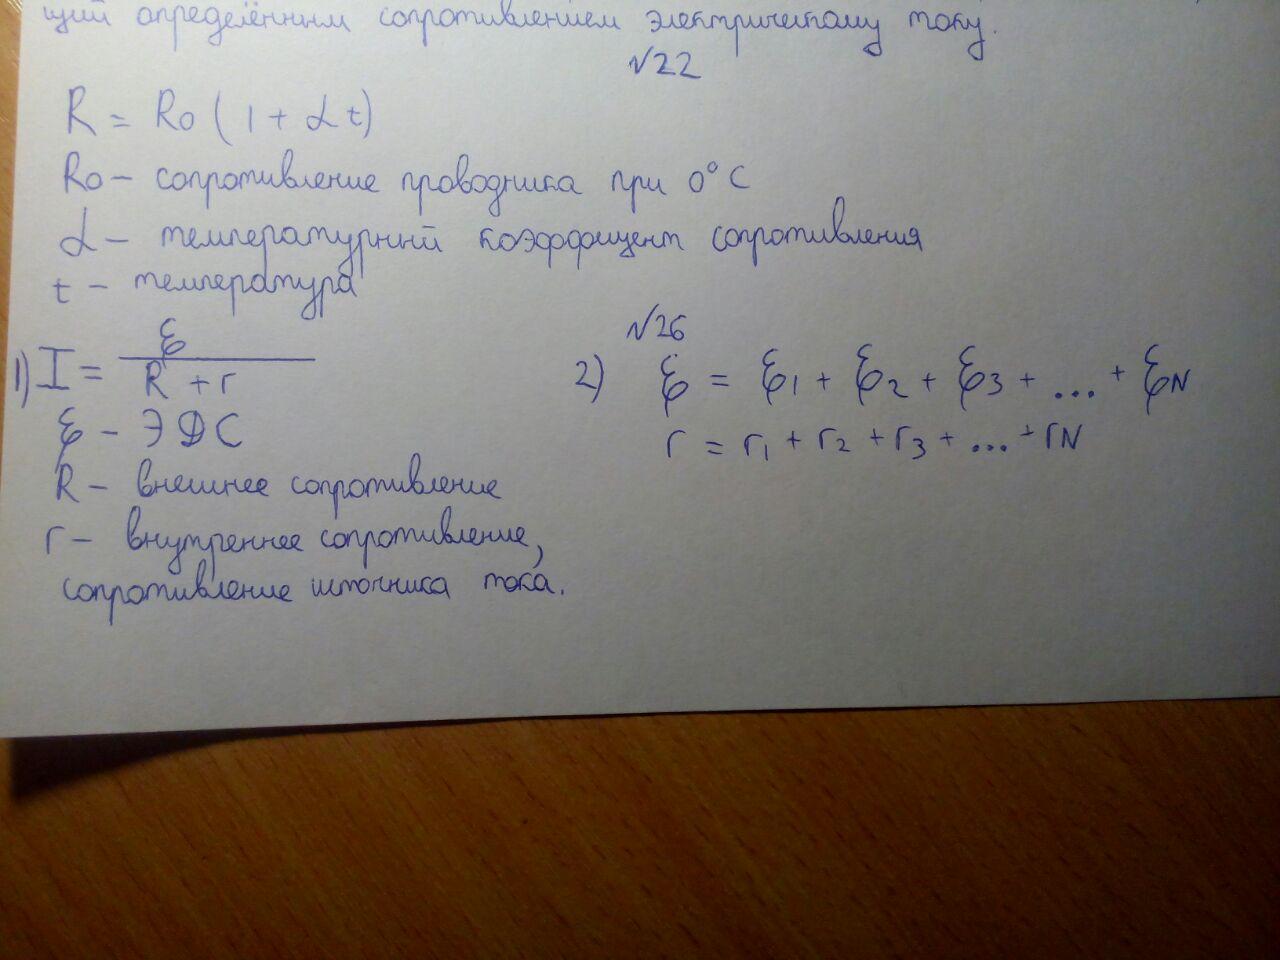 щий определённым сопротивлением электрическому току.
№22
R = R0 (1 + αt)
R0 – сопротивление проводника при 0°C
α – температурный коэффицент сопротивления
t – температура
№26
1) I = ℰ / (R + r)
ℰ – ЭДС
R – внешнее сопротивление
r – внутреннее сопротивление,
сопротивление источника тока.
2) ℰ = ℰ1 + ℰ2 + ℰ3 + ... + ℰN
r = r1 + r2 + r3 + ... + rN